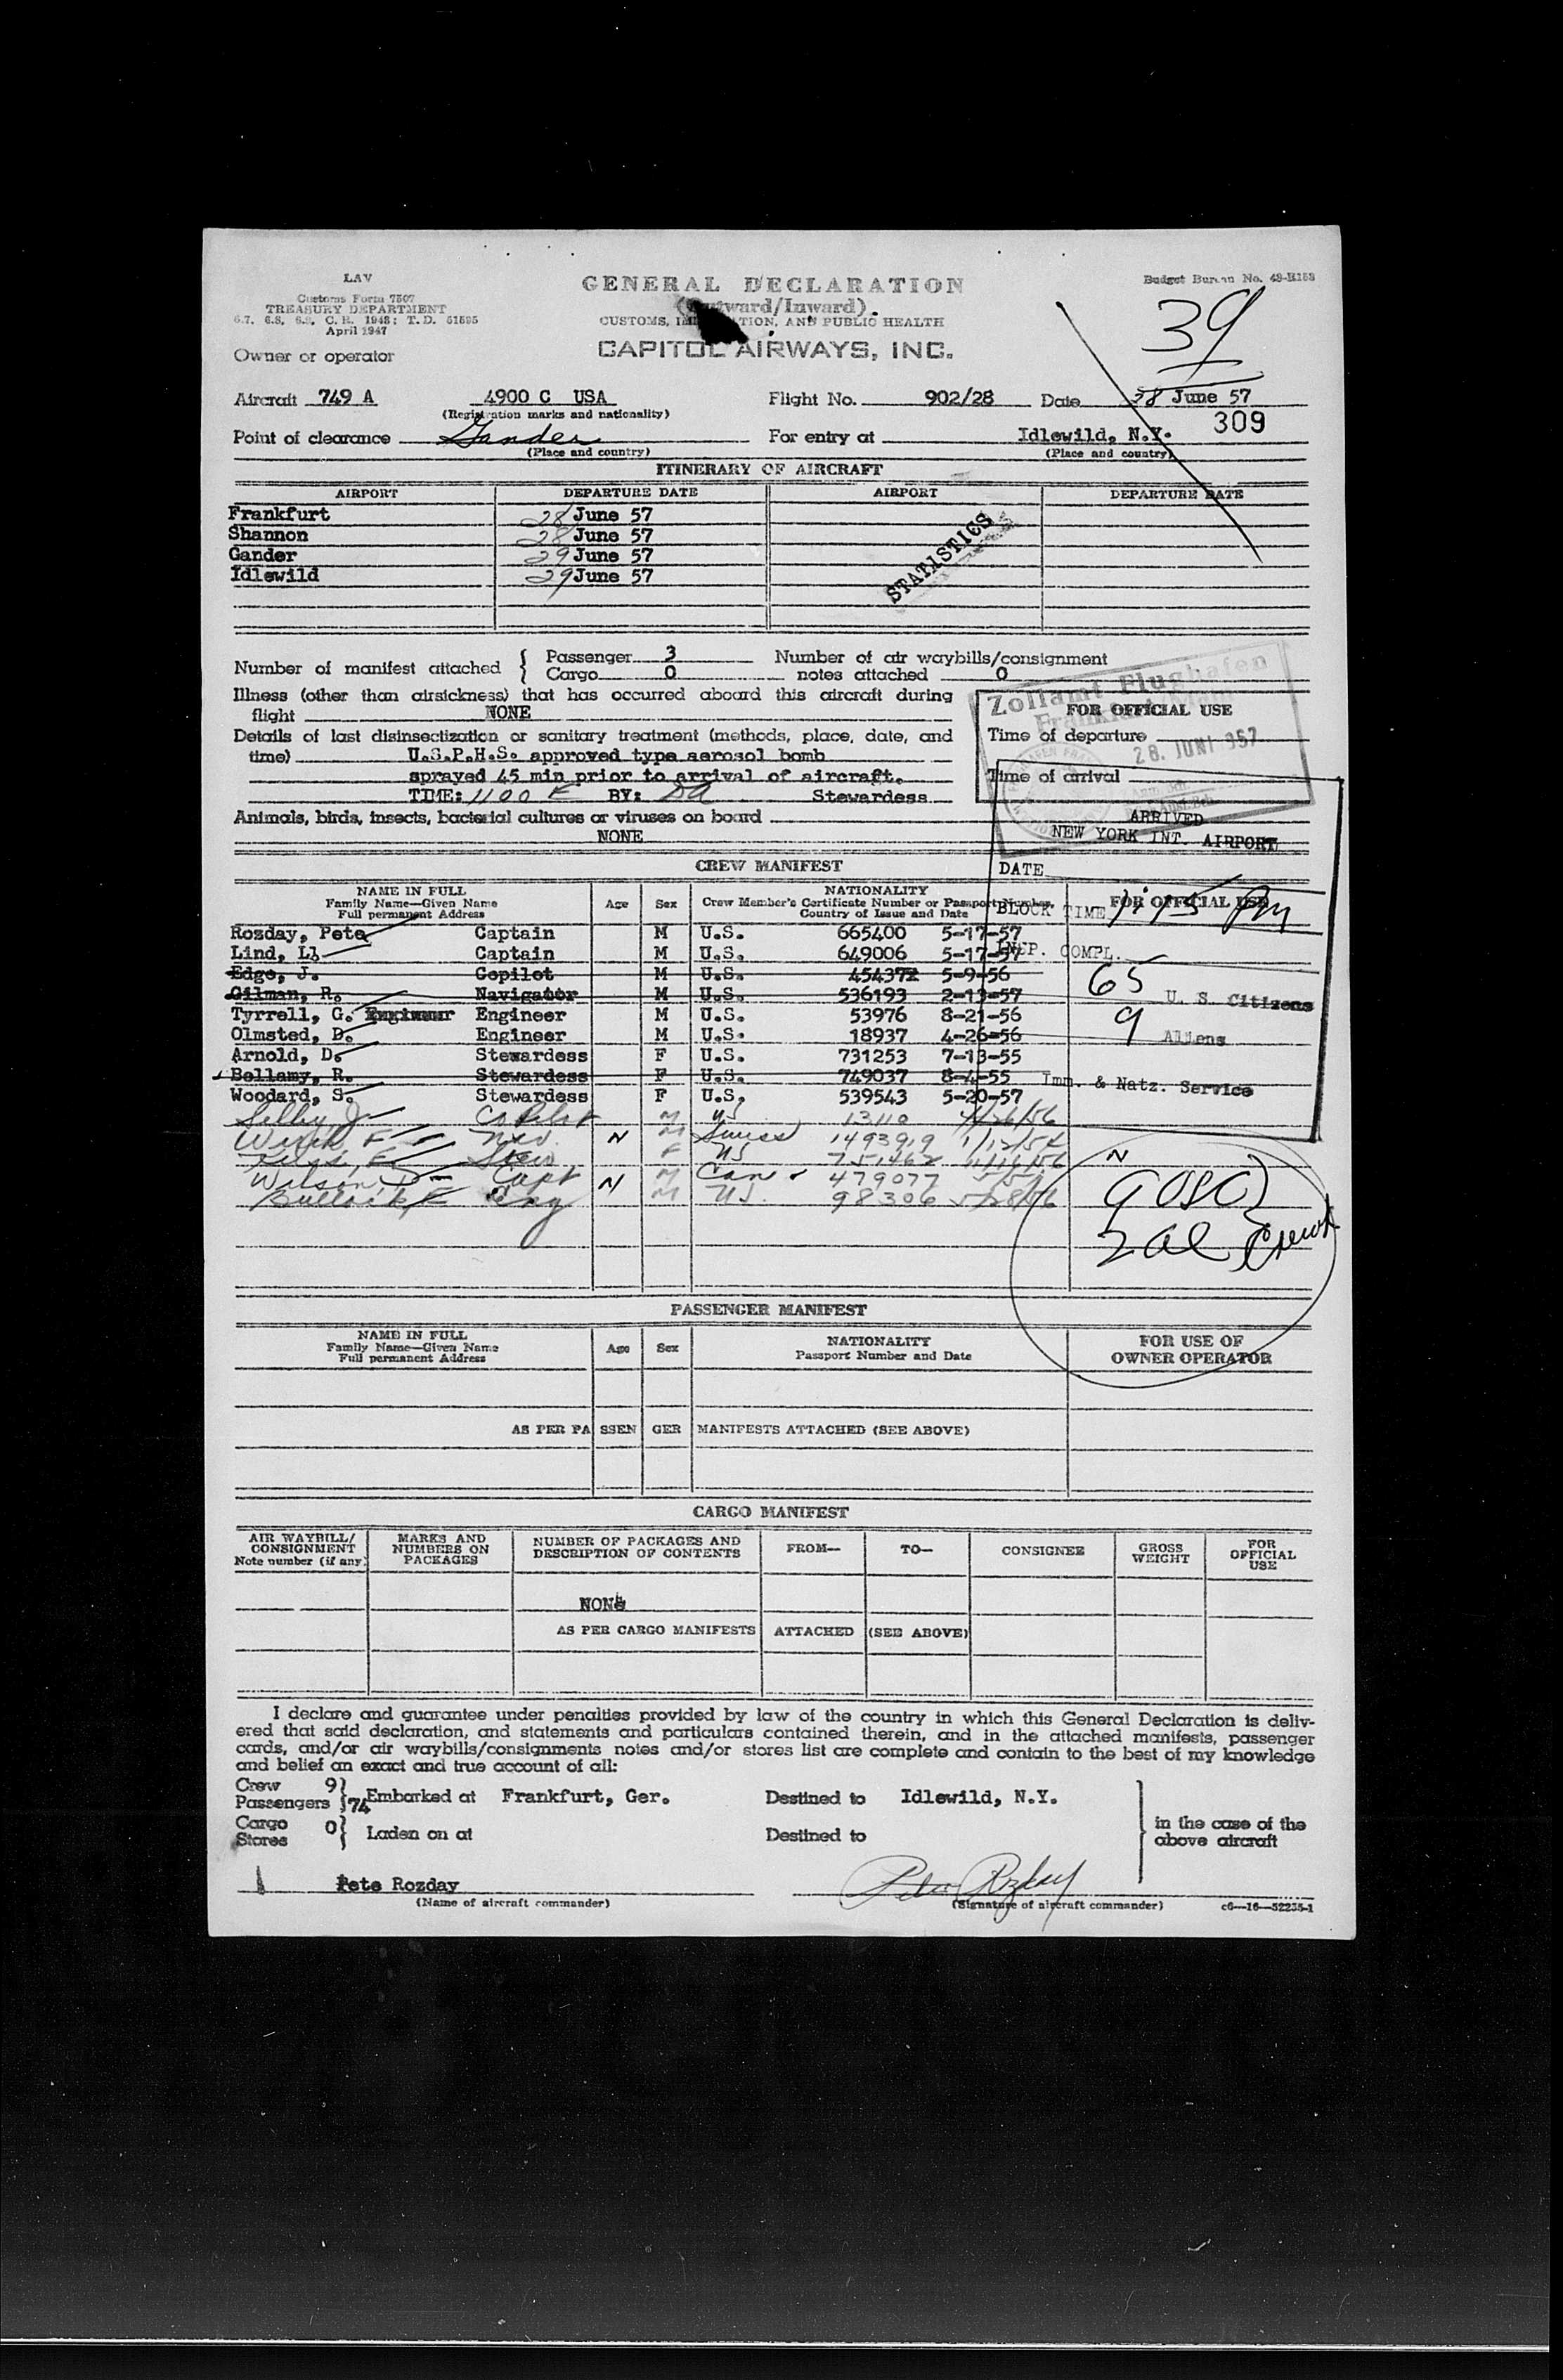 LAV
Customs Form 7507
TREASURY DEPARTMENT
6.7, 6.8, 6.9, C. R. 1948; T. D. 51595
April 1947
GENERAL DECLARATION
(Outward/Inward)
CUSTOMS, IMMIGRATION, AND PUBLIC HEALTH
CAPITOL AIRWAYS, INC.
Budget Bureau No. 48-R153
39
Owner or operator
Aircraft 749 A 4900 C USA Flight No. 902/28 Date 28 June 57
(Registration marks and nationality)
309
Point of clearance Gander For entry at Idlewild, N.Y.
(Place and country) (Place and country)
ITINERARY OF AIRCRAFT
AIRPORT DEPARTURE DATE AIRPORT DEPARTURE DATE
Frankfurt 28 June 57
Shannon 28 June 57
Gander 29 June 57
Idlewild 29 June 57
STATISTICS
Number of manifest attached { Passenger 3 Number of air waybills/consignment
Cargo 0 notes attached 0
Illness (other than airsickness) that has occurred aboard this aircraft during
flight NONE
Details of last disinsectization or sanitary treatment (methods, place, date, and
time) U.S.P.H.S. approved type aerosol bomb
sprayed 45 min prior to arrival of aircraft.
TIME: 1100 E BY: DA Stewardess
Animals, birds, insects, bacterial cultures or viruses on board
NONE
Zollamt Flughafen
FOR OFFICIAL USE
Time of departure
28. JUNI 957
Time of arrival
ARRIVED
NEW YORK INT. AIRPORT
DATE
BLOCK TIME PM
INSP. COMPL.
65 U. S. Citizens
9 Aliens
Imm. & Natz. Service
CREW MANIFEST
NAME IN FULL
Family Name—Given Name
Full permanent Address
Age Sex
NATIONALITY
Crew Member's Certificate Number or Passport Number,
Country of Issue and Date
FOR OFFICIAL USE
Rozday, Pete Captain M U.S. 665400 5-17-57
Lind, L. Captain M U.S. 649006 5-17-57
Edge, J. Copilot M U.S. 454372 5-9-56
Gilman, R. Navigator M U.S. 536193 2-13-57
Tyrrell, G. Engineer M U.S. 53976 8-21-56
Olmsted, D. Engineer M U.S. 18937 4-26-56
Arnold, D. Stewardess F U.S. 731253 7-13-55
Bellamy, R. Stewardess F U.S. 749037 8-4-55
Woodard, S. Stewardess F U.S. 539543 5-20-57
Selby, J. CoPilot M US 13110
Nav. N M Swiss 1493919
Stew F US 751462 11/16/56
Wilson, D Capt N M Can 479077
Bullock, F Eng M US 98306 5/28/56
N
9 USC
2 al Crew
PASSENGER MANIFEST
NAME IN FULL
Family Name—Given Name
Full permanent Address
Age Sex
NATIONALITY
Passport Number and Date
FOR USE OF
OWNER OPERATOR
AS PER PASSENGER MANIFESTS ATTACHED (SEE ABOVE)
CARGO MANIFEST
AIR WAYBILL/
CONSIGNMENT
Note number (if any)
MARKS AND
NUMBERS ON
PACKAGES
NUMBER OF PACKAGES AND
DESCRIPTION OF CONTENTS
FROM— TO— CONSIGNEE
GROSS
WEIGHT
FOR
OFFICIAL
USE
NONE
AS PER CARGO MANIFESTS ATTACHED (SEE ABOVE)
I declare and guarantee under penalties provided by law of the country in which this General Declaration is deliv-
ered that said declaration, and statements and particulars contained therein, and in the attached manifests, passenger
cards, and/or air waybills/consignments notes and/or stores list are complete and contain to the best of my knowledge
and belief an exact and true account of all:
Crew 9
Passengers 74 Embarked at Frankfurt, Ger. Destined to Idlewild, N.Y.
Cargo 0
Stores Laden on at Destined to
in the case of the
above aircraft
Pete Rozday
(Name of aircraft commander)
Peter Rozday
(Signature of aircraft commander)
c6—16—52235-1